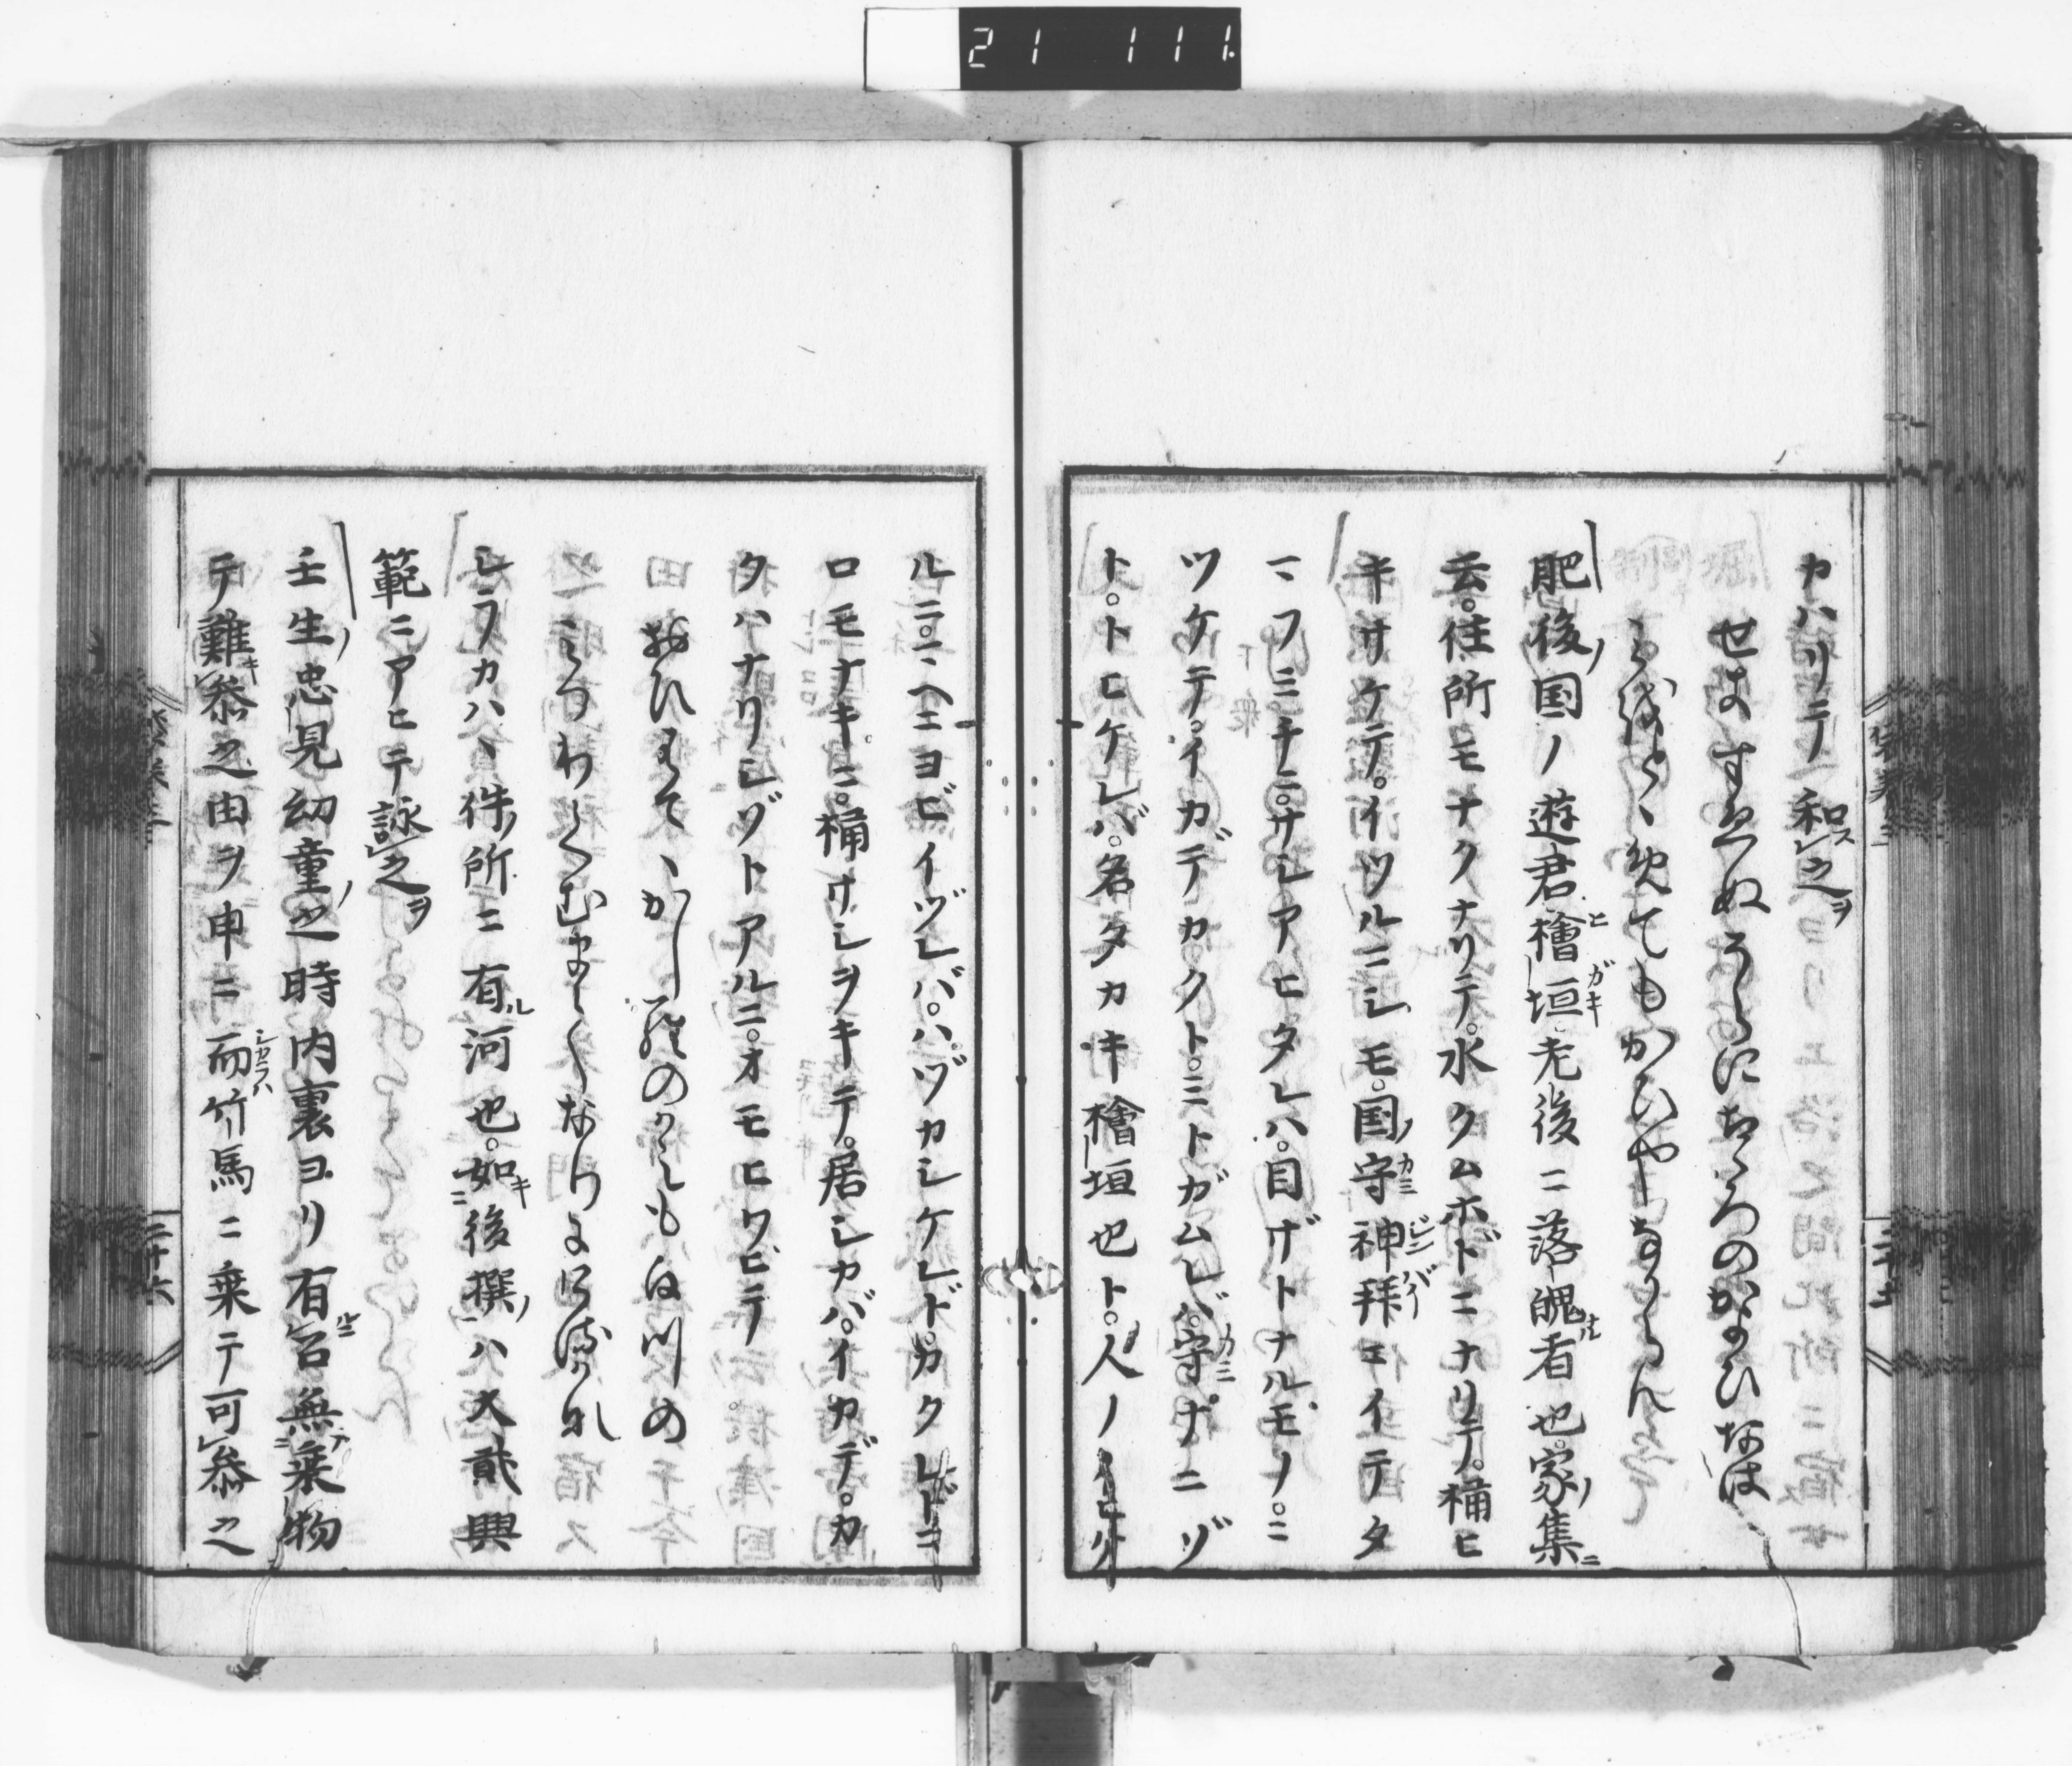 21 111
カハリテ和スレ之ヲ
せますゑぬうらに
ても
肥後ノ国ノ遊君檜垣老後ニ落魄者也家ノ集ニ
云。住所モナクナリテ。水クムホドニナリテ。桶ヒ
キサケテ。イツルニシモ。国ノ守神拝エイテタ
マフミチニ。サシアヒタレハ。目ザトナルモノ。ニ
ツケテ。イカデカクト。ミトガムレバ。守。ナニゾ
ト。トヒケレバ。名タカキ檜垣也ト。人ノイヒケ
ルニ。マヘニヨビイヅレバ。ハヅカシケレド。カクレドコ
ロモナキニ。桶サシヲキテ。居シカバ。イカデ。カ
タハナリシゾトアルニ。オモヒワビテ
おひはてゝかしらのかみもしら川の
みつわくむまてなりにける
シラカハヽ件ノ所ニ有ル河也。如キニ後撰ノ一ハ大貳興
範ニアヒテ詠レ之ヲ
壬生ノ忠見幼童ノ之時内裏ヨリ有ルニ召無テニ乗物
テ難キレ参之由ヲ申ニ而竹馬ニ乗テ可レ参之
二十六